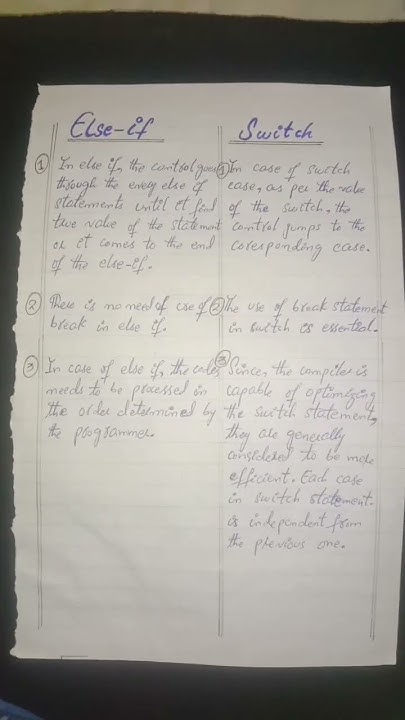 Else-if
① In else if, the control goes
through the every else if
statements until it find
true value of the statement
or it comes to the end
of the else-if.
② There is no need of use of
break in else if.
③ In case of else if, the code
needs to be processed in
the order determined by
the programmer.
Switch
① In case of switch
case, as per the value
of the switch, the
control jumps to the
coresponding case.
② The use of break statement
in switch is essential.
③ Since, the compiler is
capable of optimizing
the switch statement,
they are generally
considered to be more
efficient. Each case
in switch statement.
is independent from
the previous one.